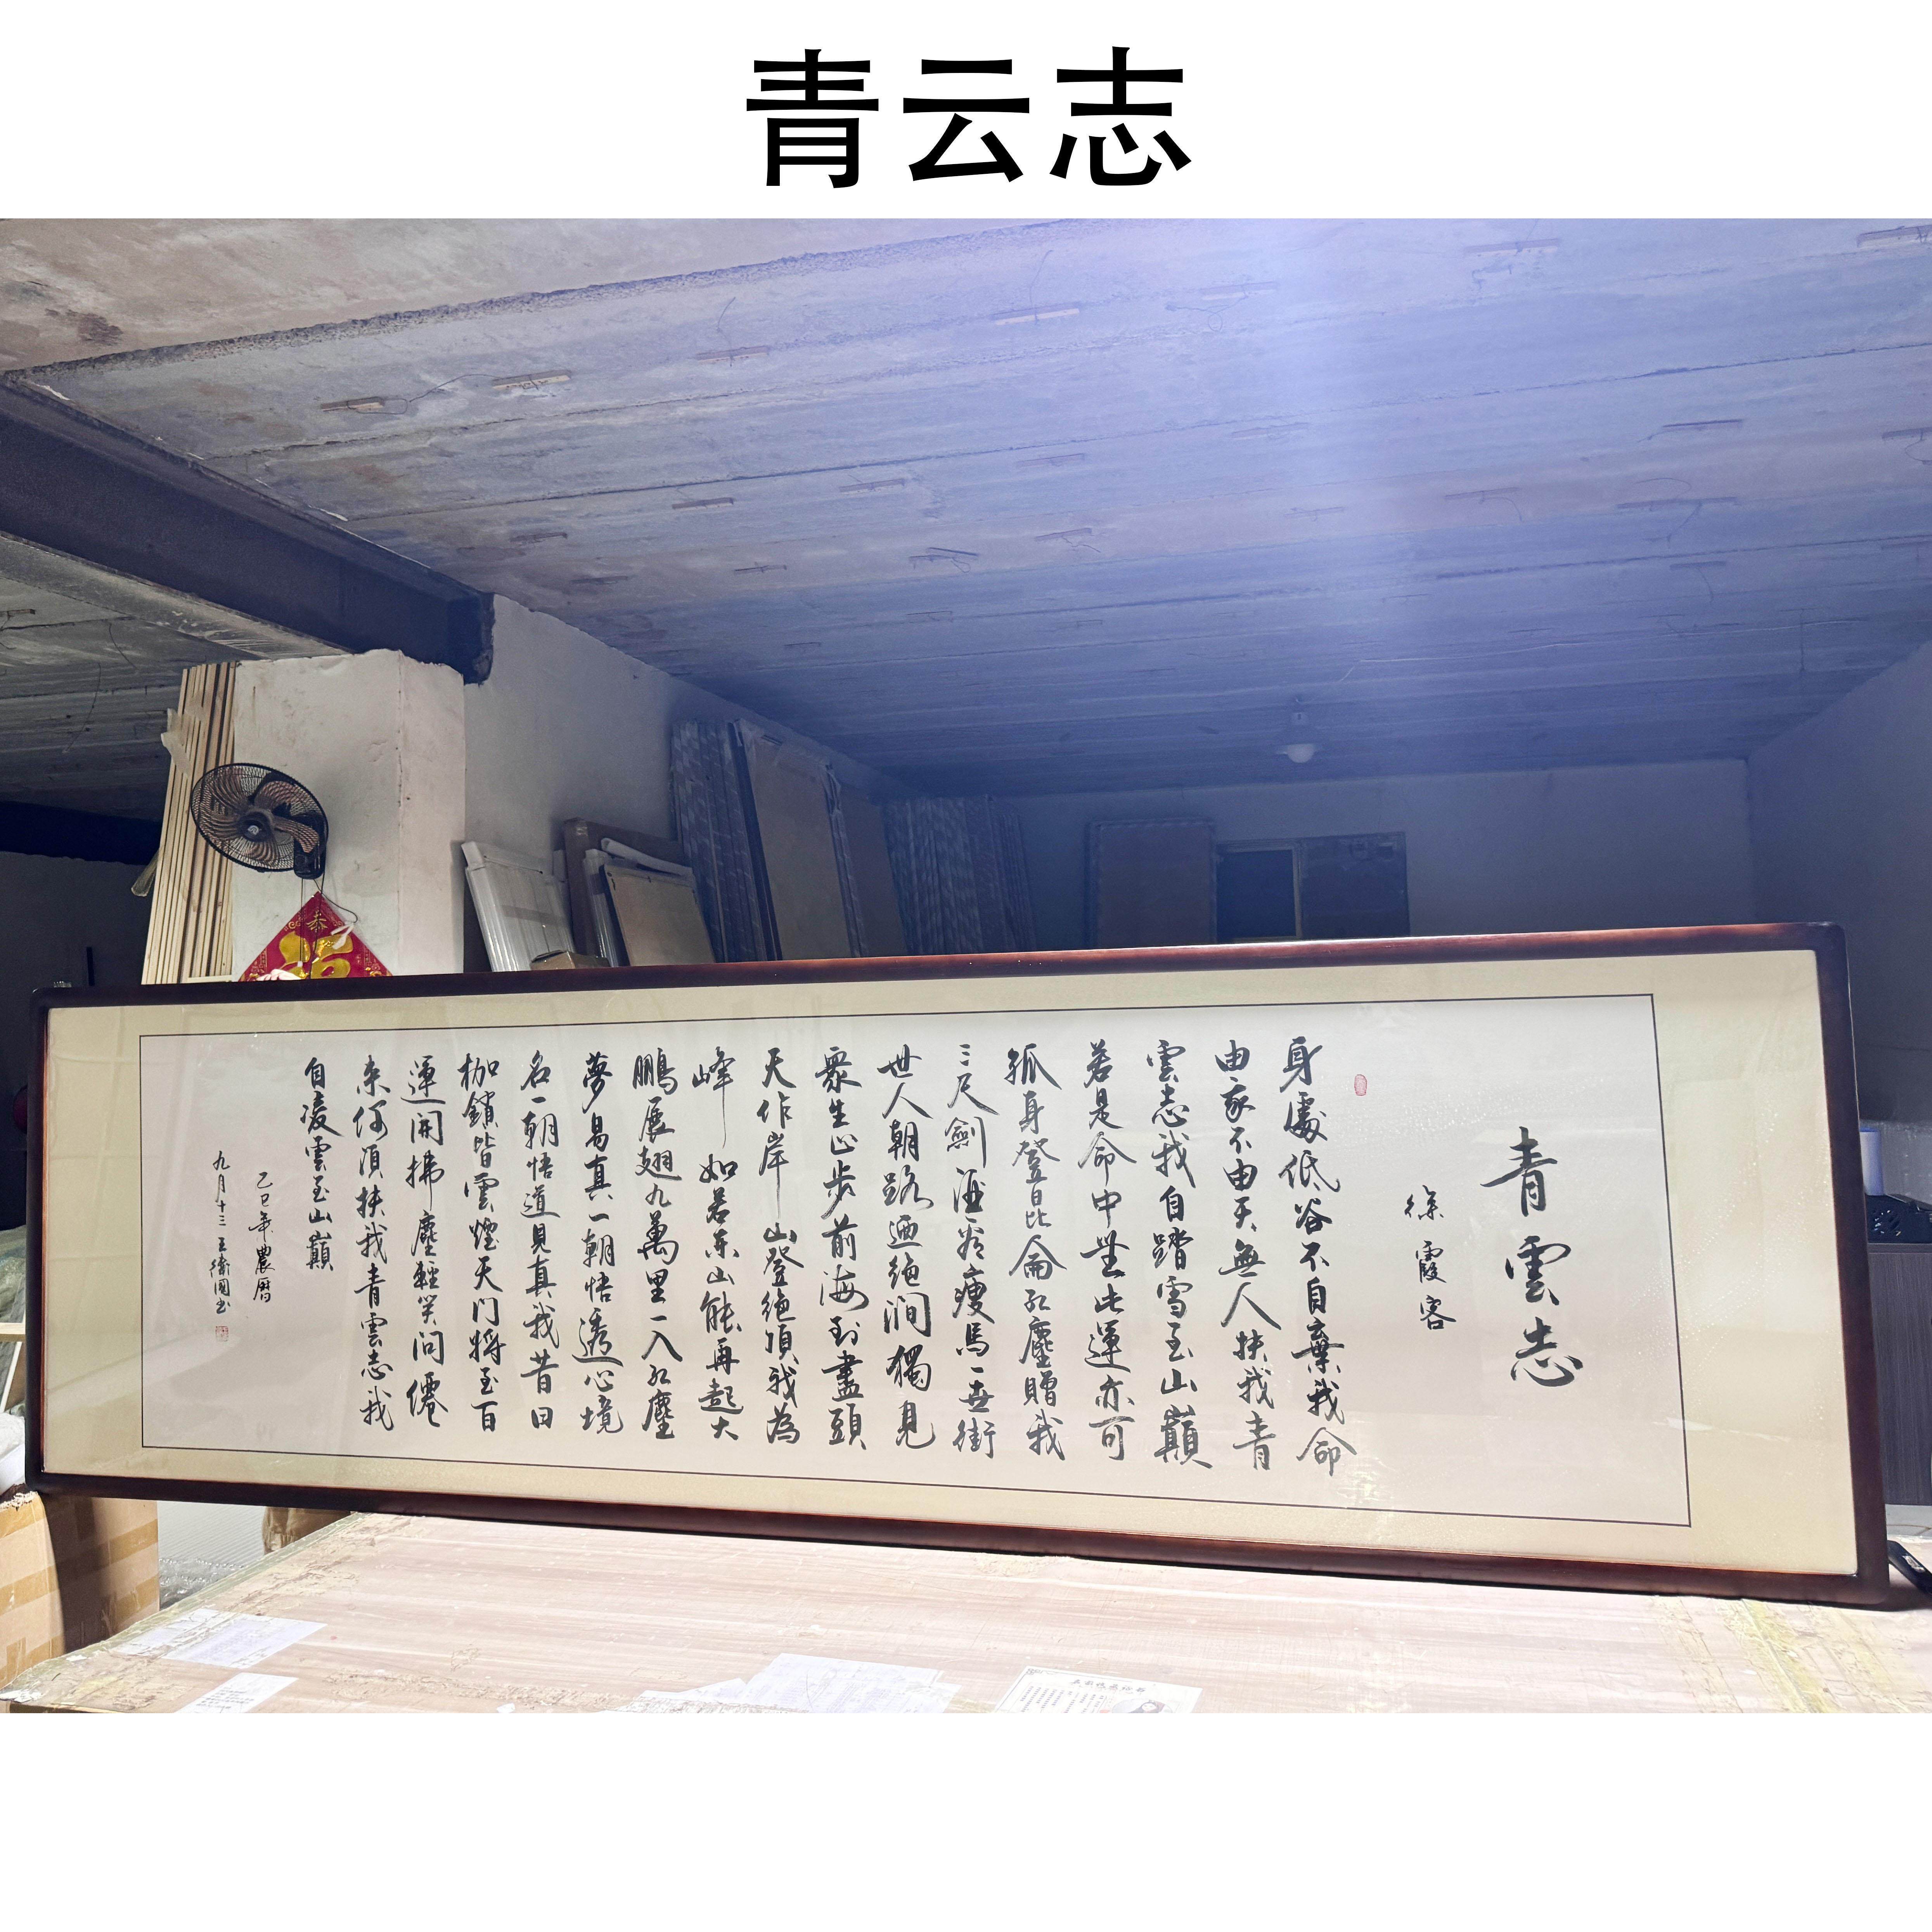 青云志
青雲志
徐霞客
身處低谷不自棄我命
由我不由天無人扶我青
雲志我自踏雪至山巔
若是命中無此運亦可
孤身登昆侖紅塵贈我
三尺劍酒看瘦馬一世街
世人朝路迺絶澗獨見
衆生止步前海到盡頭
天作岸山登絶頂我為
峰如若东山能再起大
鵬展翅九萬里一入紅塵
夢易真一朝悟透心境
名一朝悟道見真我昔日
枷鎖皆雲煙天門將至百
運開拂塵輕笑問僊
来何須扶我青雲志我
自凌雲至山巔
乙巳年農曆
九月十三王衛國书
恭